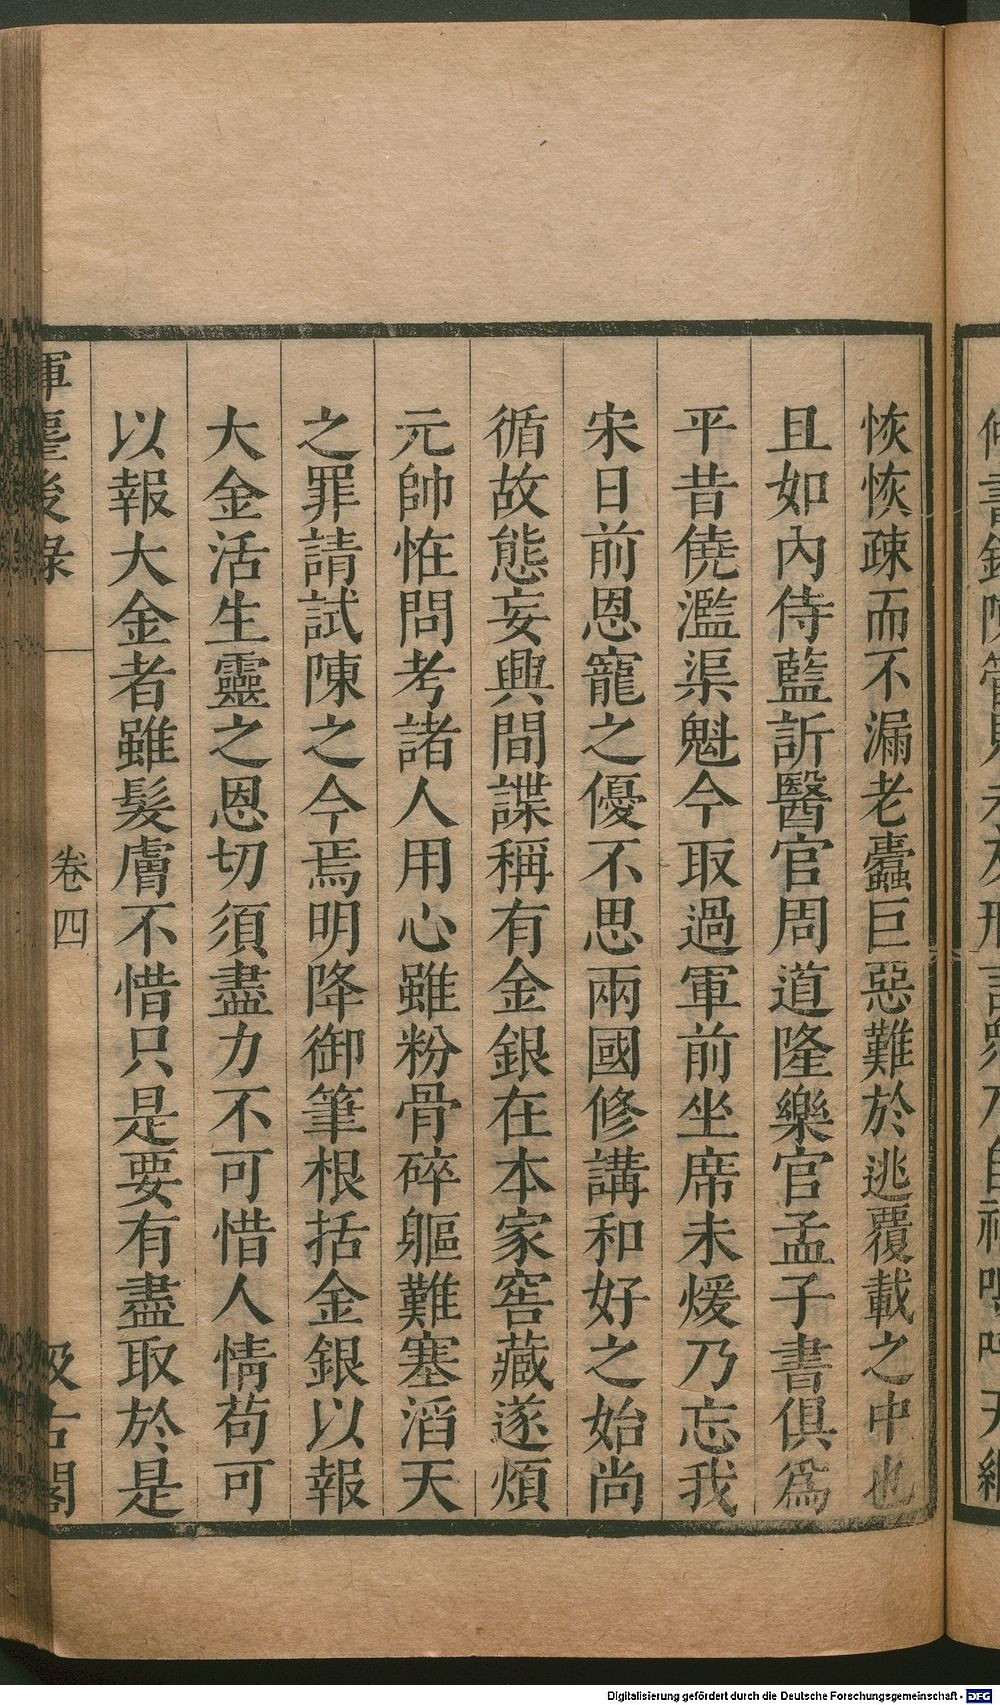 恢恢疎而不漏老蠹巨惡難於逃覆載之中也
且如內侍藍訢醫官周道隆樂官孟子書俱爲
平昔僥濫渠魁今取過軍前坐席未煖乃忘我
宋日前恩寵之優不思兩國修講和好之始尚
循故態妄興間諜稱有金銀在本家窖藏遂煩
元帥恠問考諸人用心雖粉骨碎軀難塞滔天
之罪請試陳之今焉明降御筆根括金銀以報
大金活生靈之恩切須盡力不可惜人情苟可
以報大金者雖髮膚不惜只是要有盡取於是
揮麈後錄
卷四
汲古閣
Digitalisierung gefördert durch die Deutsche Forschungsgemeinschaft - DFG